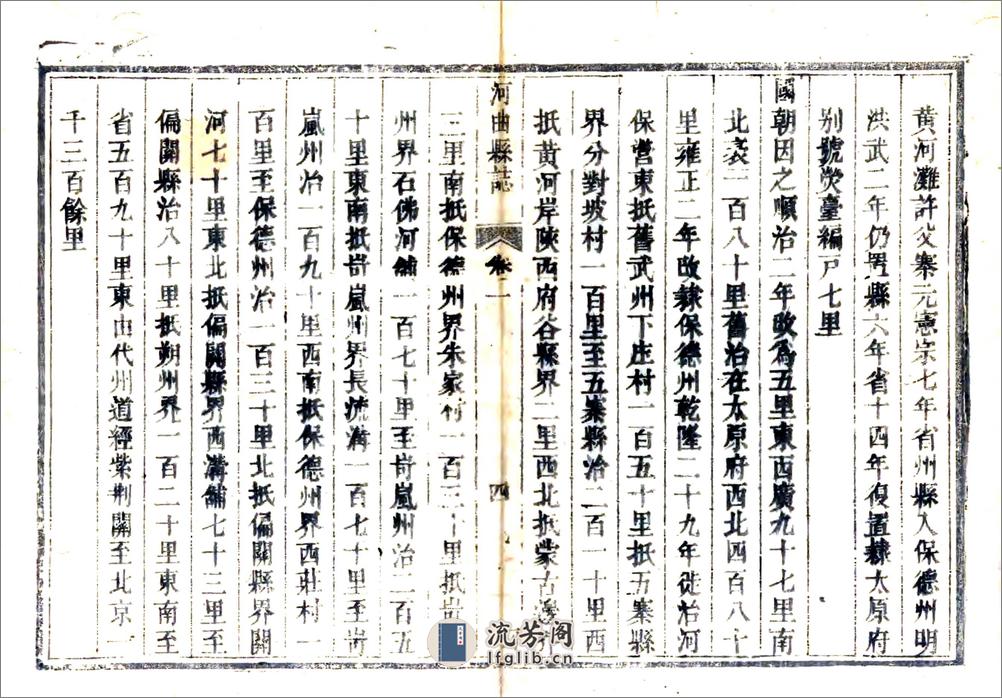 黄河灘許父寨元憲宗七年省州縣入保德州明
洪武二年仍置縣六年省十四年復置隸太原府
别號熒臺編戸七里
國朝因之順治二年改為五里東西廣九十七里南
北袤一百八十里舊治在太原府西北四百八十
里雍正二年改隸保德州乾隆二十九年徙治河
保營東抵舊武州下庄村一百五十里抵五寨縣
界分對坡村一百里至五寨縣治二百一十里西
抵黄河岸陝西府谷縣界二里西北抵蒙古邊界
河曲縣誌
卷二
四
三里南抵保德州界朱家村一百三十里抵岢嵐
州界石佛河舖一百七十里至岢嵐州治二百五
十里東南抵岢嵐州界長流溝一百七十里至岢
嵐州治一百九十里西南抵保德州界西莊村一
百里至保德州治一百三十里北抵偏關縣界關
河七十里東北抵偏關縣界西溝舖七十三里至
偏關縣治八十里抵朔州界一百二十里東南至
省五百九十里東由代州道經紫荆關至北京一
千三百餘里
流芳阁
lfglib.cn